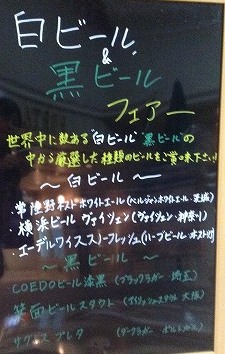 白ビール
&
黒ビール
フェアー
世界中に数ある"白ビール" "黒ビール"の
中から厳選した種類のビールをご賞味下さい!
〜白ビール〜
・常陸野ネストホワイトエール(ベルジャンホワイトエール・茨城)
・横浜ビール ヴァイツェン(ヴァイツェン・神奈川)
・エーデルワイススノーフレッシュ(ハーブビール・
〜黒ビール〜
COEDOビール漆黒(ブラックラガー・埼玉)
箕面ビールスタウト(
大阪)
サグレス プレタ(ダークラガー ポルトガル)